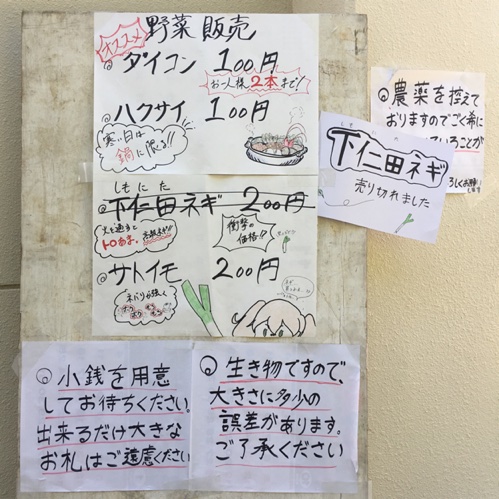 オススメ
野菜販売
ダイコン 100円
お一人様2本まで!
ハクサイ 100円
寒い日は
鍋に限る!!
しもにた
下仁田ネギ 200円
火を通すと
トロあま。
衝撃の
価格!!
サトイモ 200円
ネバリが強く
小銭を用意
してお待ちください。
出来るだけ大きな
お札はご遠慮ください
生き物ですので、
大きさに多少の
誤差があります。
ご了承ください
農薬を控えて
おりますのでごく希に
いることが
しもにた
下仁田ネギ
売り切れました